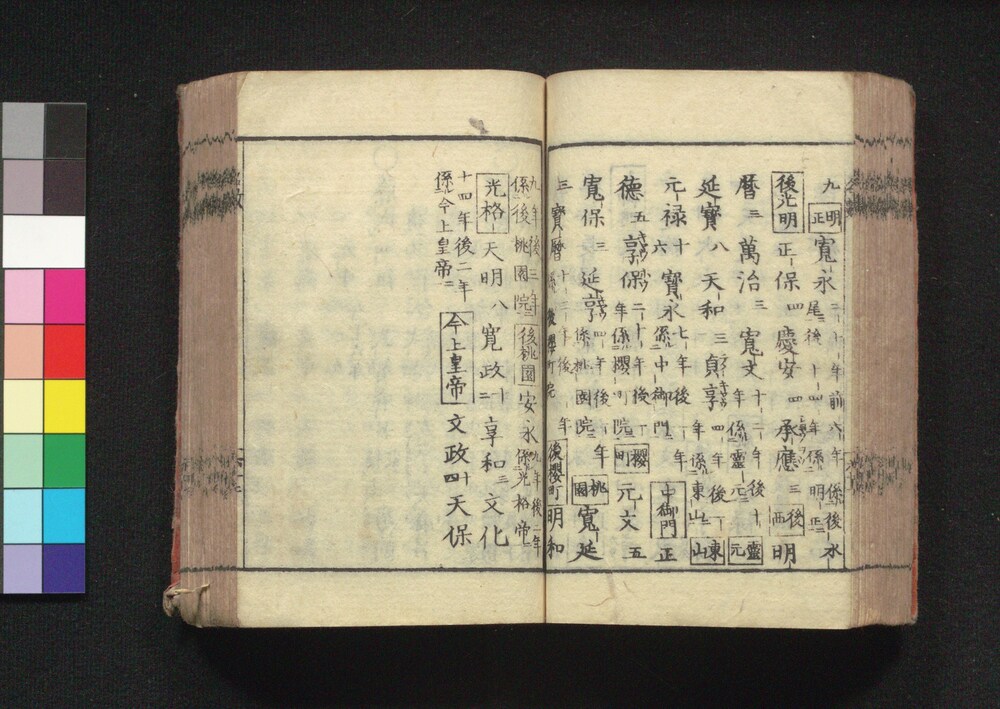 九明正寛永二十年前六年係後水
尾後十四年係明正
後光明正保四慶安四承應三後西明
暦三萬治三寛文十二年後十
年係靈元靈元
延寶八天和三貞享四年後
年係東山東山
元禄十六寶永七年後一年
係中御門中御門正
德五享保二十年後一
年係櫻町院櫻町元文五
寛保三延享四年後一年
係桃園院桃園寛延
三寶暦十三年後一年
係後櫻町院後櫻町明和
九年後三年
係後桃園院後桃園安永九年後二年
係光格帝
光格天明八寛政十二享和三文化
十四年後二年
係今上皇帝今上皇帝文政十四天保